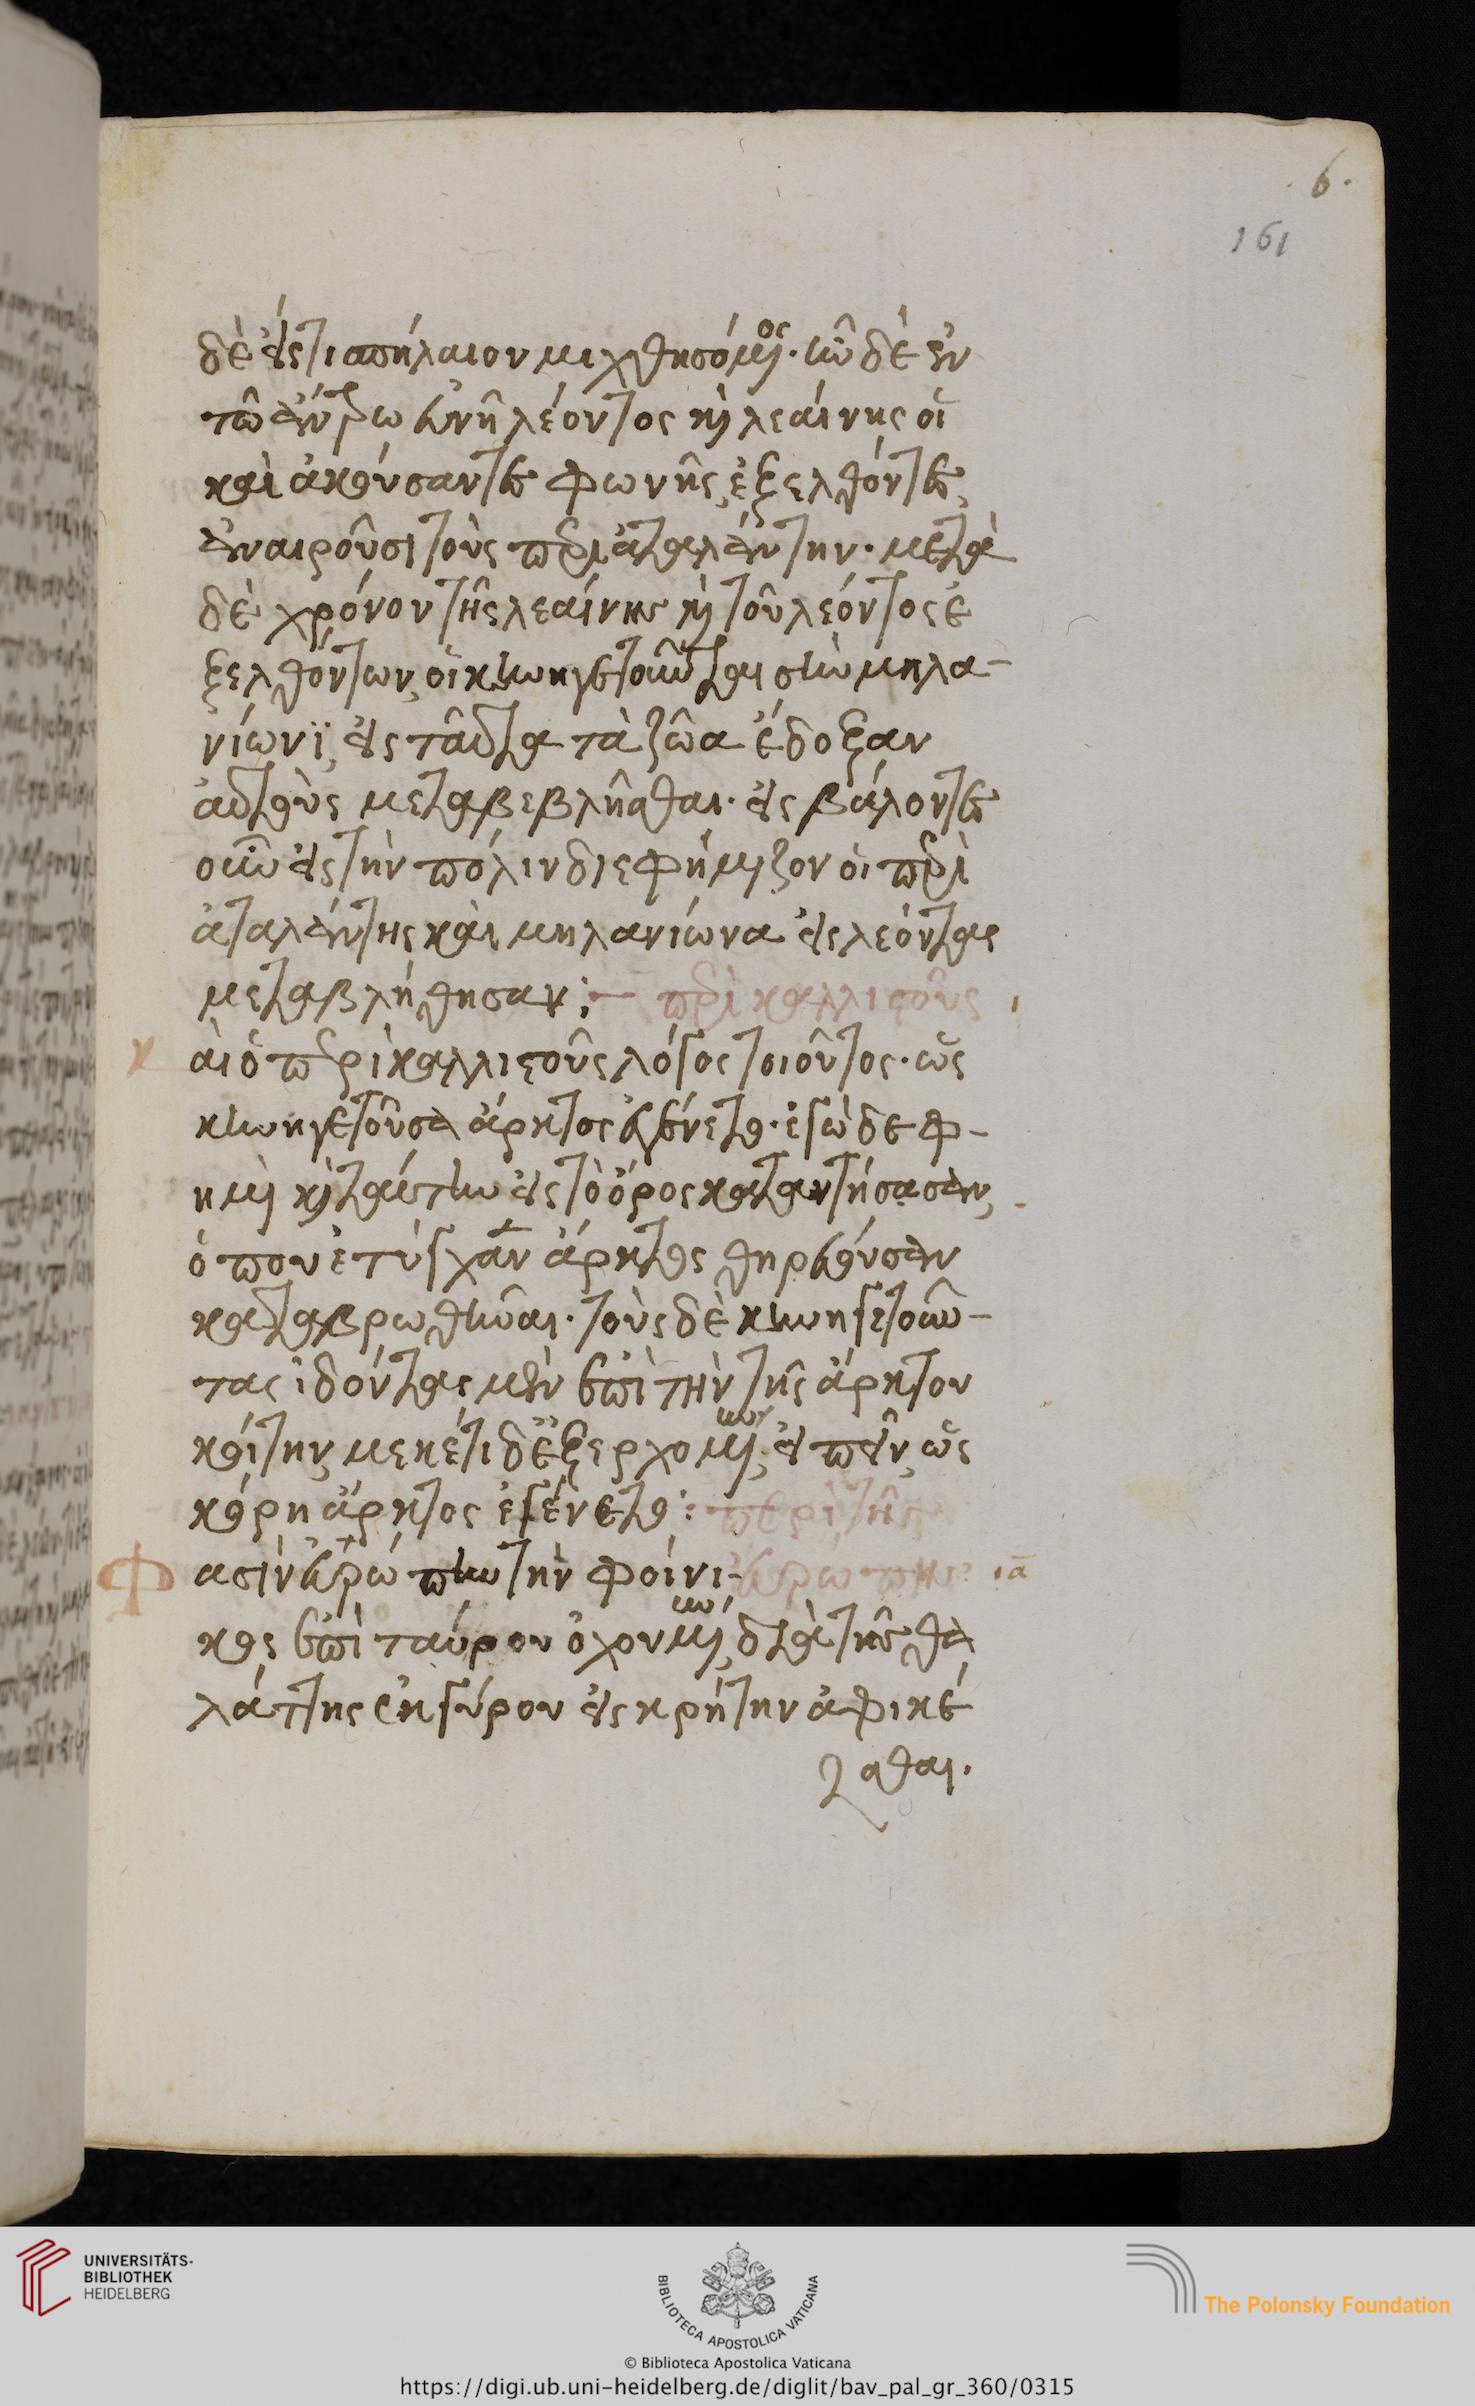 . 6 .
161
δὲ εἴς τι σπήλαιον μιχθησόμενος. ἦν δὲ ἐν
τῶ ἄντρω εὐνὴ λέοντος καὶ λεαίνης οἳ
καὶ ἀκούσαντες φωνῆς, ἐξελθόντες,
ἀναιροῦσι τοὺς περὶ ἀταλάντην. μετὰ
δὲ χρόνον τῆς λεαίνης καὶ τοῦ λέοντος ἐ
ξελθόντων, οἱ κυνηγετοῦντες σὺν μηλα-
νίωνϊ, εἰς ταῦτα τὰ ζῶα ἔδοξαν
αὐτοὺς μεταβεβλῆσθαι. εἰς βάλοντες
οὖν εἰς τὴν πόλιν διεφήμιζον οἱ περὶ
ἀταλάντης καὶ μηλανίωνα εἰς λέοντας
μεταβλήθησαν :— περὶ καλλιστοῦς
Καὶ ὁ περὶ καλλιστοῦς λόγος τοιοῦτος. ὡς
κυνηγετοῦσα ἄρκτος ἐγένετο. ἐγὼ δε φ-
ημὶ καὶ ταύτην εἰς τὸ ὄρος καταντήσασαν,
ὅπου ἐτύγχανεν ἄρκτος θηρεύουσαν
καταβρωθῆναι. τοὺς δὲ κυνηγετοῦν-
τας ἰδόντας μὲν ἐπὶ τὴν τῆς ἄρκτου
κοίτην, μεκέτι δὲ ἐξερχομένην, εἰπεῖν, ὡς
κόρη ἄρκτος ἐγένετο: περὶ τῆς
Φασὶν εὐρώπην τὴν φοίνι- εὐρώπης ιᾱ
κος ἐπὶ ταύρου ὀχουμένην, διὰ τῆς θα
λάττης ἐκ τύρου εἰς κρήτην ἀφικέ
σθαι.
UNIVERSITÄTS-
BIBLIOTHEK
HEIDELBERG
BIBLIOTECA APOSTOLICA VATICANA
The Polonsky Foundation
© Biblioteca Apostolica Vaticana
https://digi.ub.uni-heidelberg.de/diglit/bav_pal_gr_360/0315